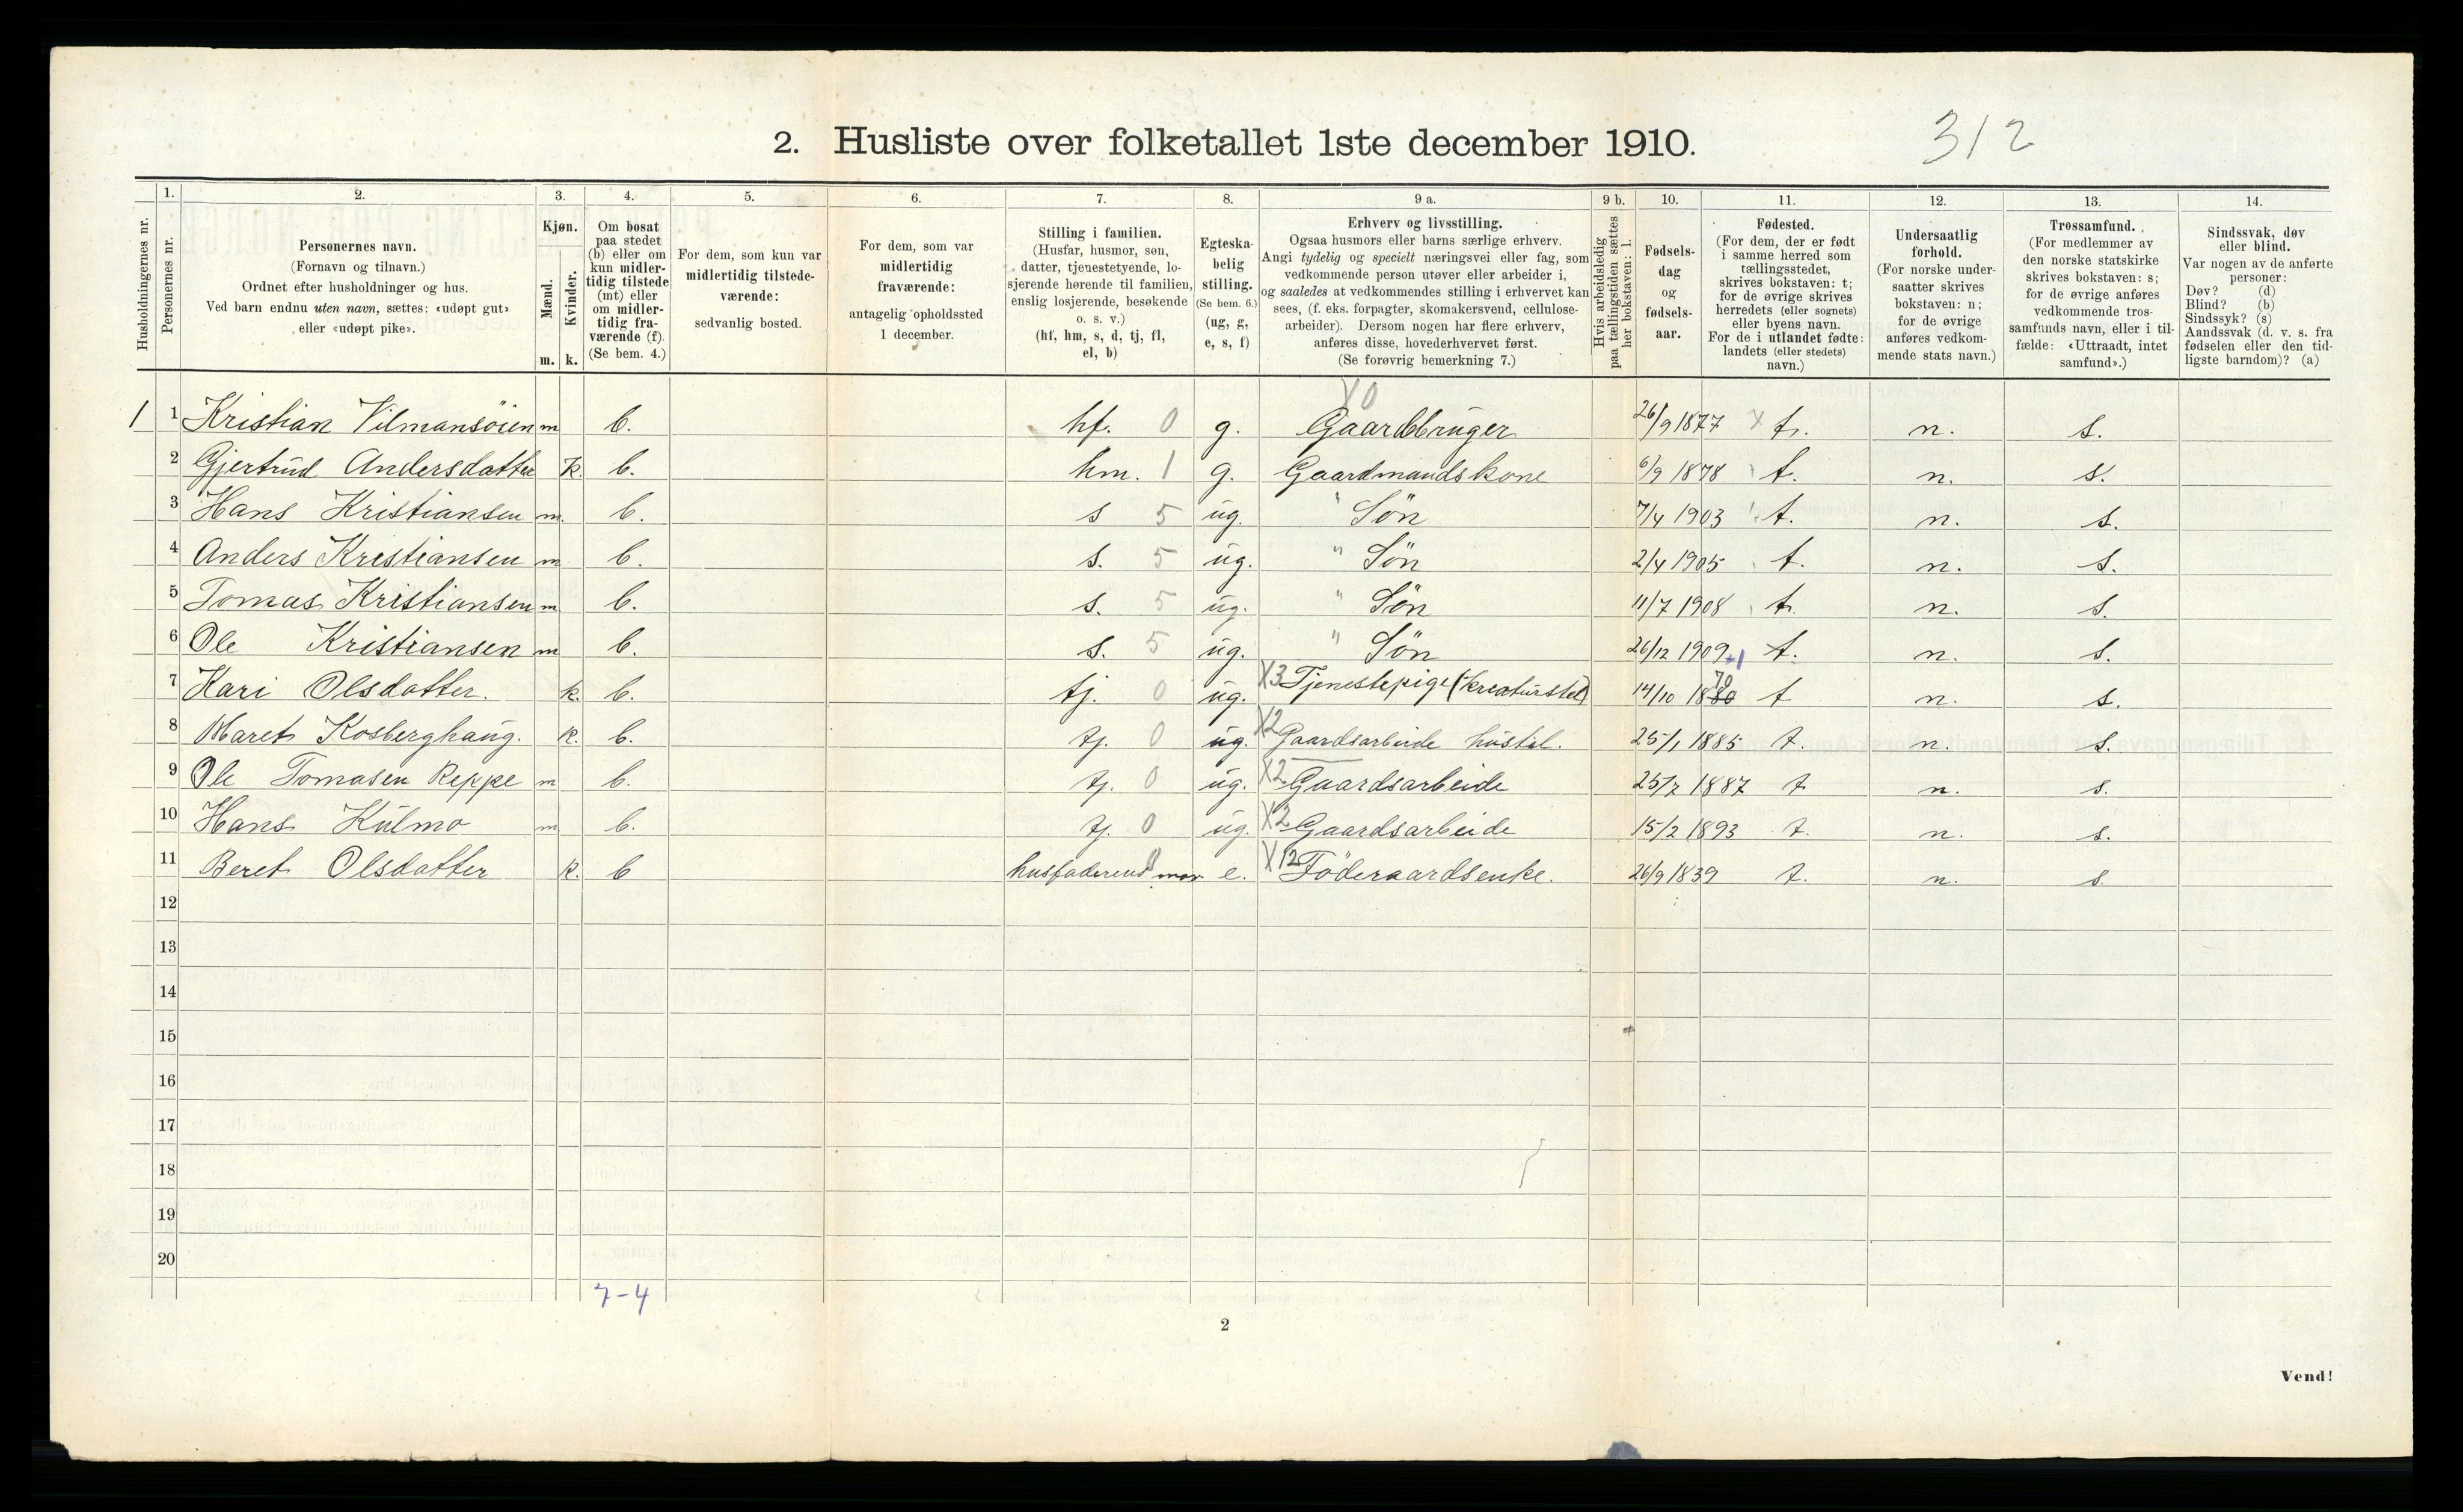 312
2. Husliste over folketallet 1ste december 1910.
Husholdningernes nr.
1.
Personernes nr.
2.
Personernes navn.
(Fornavn og tilnavn.)
Ordnet efter husholdninger og hus.
Ved barn endnu uten navn, sættes: «udøpt gut»
eller «udøpt pike».
3.
Kjøn.
Mænd.
Kvinder.
m. k.
4.
Om bosat
paa stedet
(b) eller om
kun midler-
tidig tilstede
(mt) eller
om midler-
tidig fra-
værende (f).
(Se bem. 4.)
5.
For dem, som kun var
midlertidig tilstede-
værende:
sedvanlig bosted.
6.
For dem, som var
midlertidig
fraværende:
antagelig opholdssted
1 december.
7.
Stilling i familien.
(Husfar, husmor, søn,
datter, tjenestetyende, lo-
sjerende hørende til familien,
enslig losjerende, besøkende
o. s. v.)
(hf, hm, s, d, tj, fl,
el, b)
8.
Egteska-
belig
stilling.
(Se bem. 6.)
(ug, g,
e, s, f)
9 a.
Erhverv og livsstilling.
Ogsaa husmors eller barns særlige erhverv.
Angi tydelig og specielt næringsvei eller fag, som
vedkommende person utøver eller arbeider i,
og saaledes at vedkommendes stilling i erhvervet kan
sees, (f. eks. forpagter, skomakersvend, cellulose-
arbeider). Dersom nogen har flere erhverv,
anføres disse, hovederhvervet først.
(Se forøvrig bemerkning 7.)
9 b.
Hvis arbeidsledig
paa tællingstiden sættes
her bokstaven: l.
10.
Fødsels-
dag
og
fødsels-
aar.
11.
Fødested.
(For dem, der er født
i samme herred som
tællingsstedet,
skrives bokstaven: t;
for de øvrige skrives
herredets (eller sognets)
eller byens navn.
For de i utlandet fødte:
landets (eller stedets)
navn.)
12.
Undersaatlig
forhold.
(For norske under-
saatter skrives
bokstaven: n;
for de øvrige
anføres vedkom-
mende stats navn.)
13.
Trossamfund.
(For medlemmer av
den norske statskirke
skrives bokstaven: s;
for de øvrige anføres
vedkommende tros-
samfunds navn, eller i til-
fælde: «Uttraadt, intet
samfund».)
14.
Sindssvak, døv
eller blind.
Var nogen av de anførte
personer:
Døv? (d)
Blind? (b)
Sindssyk? (s)
Aandssvak (d. v. s. fra
fødselen eller den tid-
ligste barndom)? (a)
X0
1 1 Kristian Vilmansöien m b. hf. 0 g. Gaardbruger 26/9 1877 t. n. s.
2 Gjertrud Andersdatter k. b. hm. 1 g. Gaardmandskone 6/9 1878 t. n. s.
3 Hans Kristiansen m. b. s 5 ug. " Sön 7/4 1903 t. n. s.
4 Anders Kristiansen m b. s. 5 ug. " Sön 2/4 1905 t. n. s.
5 Tomas Kristiansen m b. s. 5 ug. " Sön 11/7 1908 t. n. s.
6 Ole Kristiansen m b. s. 5 ug. " Sön 26/12 1909 +1 t. n. s.
7 Kari Olsdatter. k. b. tj. 0 ug. X3 Tjenestepige (kreaturstel) 14/10 1880 70 t n. s.
8 Maret Kosberghaug. k. b. tj. 0 ug. X2 Gaardsarbeide hustel. 25/1 1885 t. n. s.
9 Ole Tomasen Reppe m b. tj. 0 ug. X2 Gaardsarbeide 25/7 1887 t n. s.
10 Hans Kulmo m b. tj. 0 ug. X2 Gaardsarbeide 15/2 1893 t. n. s.
11 Beret Olsdatter k. b husfaderens mor 0 e. X12 Föderaardsenke. 26/9 1839 t. n. s.
12
13
14
15
16
17
18
19
20
7-4
2
Vend!